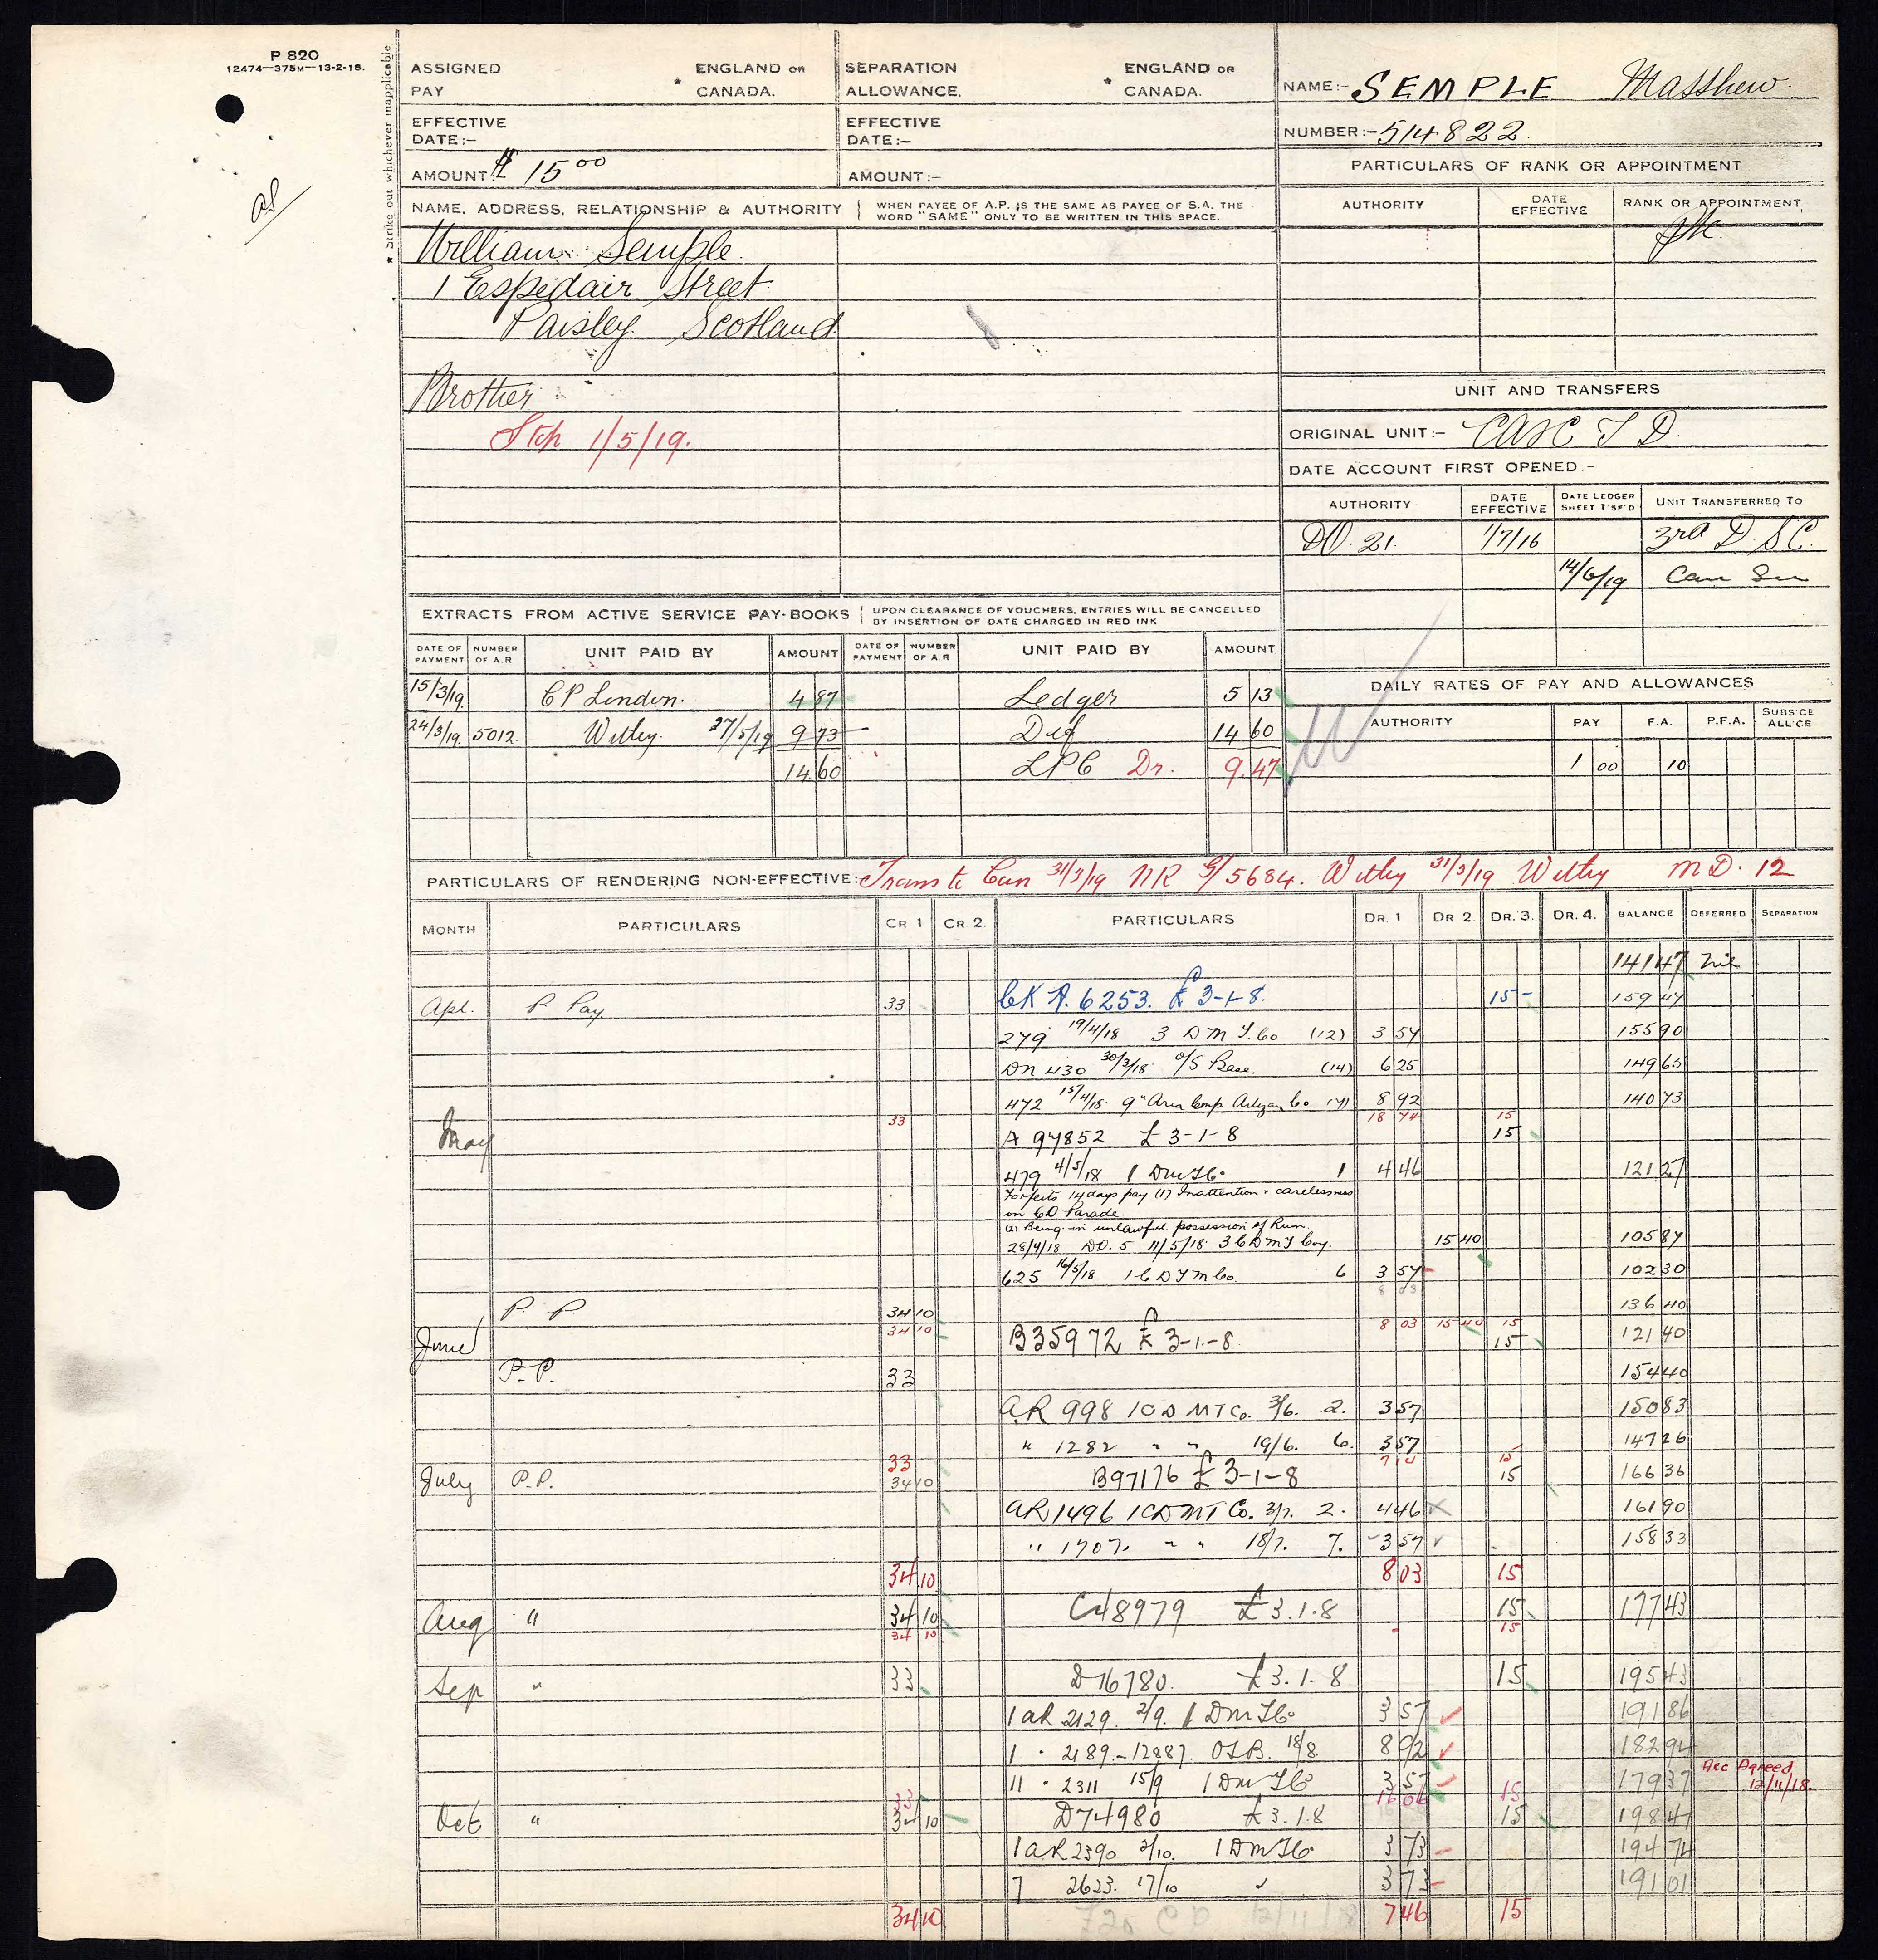 P 820
12474—375M—13-2-18.
* Strike out whichever inapplicable
ASSIGNED PAY * ENGLAND OR CANADA.
SEPARATION ALLOWANCE. * ENGLAND OR CANADA.
NAME:- SEMPLE Matthew
EFFECTIVE DATE:-
EFFECTIVE DATE:-
NUMBER:- 514822.
AMOUNT: $ 15 00
AMOUNT:-
PARTICULARS OF RANK OR APPOINTMENT
NAME, ADDRESS, RELATIONSHIP & AUTHORITY
WHEN PAYEE OF A.P. IS THE SAME AS PAYEE OF S.A. THE
WORD "SAME" ONLY TO BE WRITTEN IN THIS SPACE.
AUTHORITY DATE EFFECTIVE RANK OR APPOINTMENT
William Semple.
1 Espedair Street
Paisley. Scotland
Brother
Stop 1/5/19.
UNIT AND TRANSFERS
ORIGINAL UNIT:- CASC T D.
DATE ACCOUNT FIRST OPENED.-
AUTHORITY DATE EFFECTIVE DATE LEDGER SHEET T'SF'D UNIT TRANSFERRED TO
DO. 21. 1/7/16 3rd D.S.C.
14/6/19
EXTRACTS FROM ACTIVE SERVICE PAY-BOOKS
UPON CLEARANCE OF VOUCHERS, ENTRIES WILL BE CANCELLED
BY INSERTION OF DATE CHARGED IN RED INK
DATE OF PAYMENT NUMBER OF A.R UNIT PAID BY AMOUNT DATE OF PAYMENT NUMBER OF A.R UNIT PAID BY AMOUNT
15/3/19. CP London. 4 87 Ledger 5 13
24/3/19. 5012. Witley. 27/5/19 9 73 Dif 14 60
14 60 LPC Dr. 9.47
DAILY RATES OF PAY AND ALLOWANCES
AUTHORITY PAY F.A. P.F.A. SUBS'CE ALL'CE
1 00 10
PARTICULARS OF RENDERING NON-EFFECTIVE: Trans to Can 31/3/19 NR 5684. Witley 31/3/19 Witley M D. 12
MONTH PARTICULARS CR 1 CR 2. PARTICULARS DR. 1 DR 2. DR. 3. DR. 4. BALANCE DEFERRED SEPARATION
141 47 Nil
Apl. P Pay 33 CK A. 6253. £ 3-1-8. 15 - 159 47
279 19/4/18 3 D M T. Co (12) 3 57 155 90
DN 430 30/3/18 O/S Base. (14) 6 25 149 65
472 15/4/18. 9" Area Comp Artizan Co 8 92 140 73
33 18 74 15
May A 97852 £ 3-1-8 15
479 4/5/18 1 DMTCo 1 4 46 121 27
Forfeits 14 days pay (1) Inattention + carelessness
on CO Parade.
(2) Being in unlawful possession of Rum.
28/4/18 DO. 5 11/5/18 3 C D M T Coy. 15 40 105 87
625 16/5/18 1 C D T M Co. 6 3 57 102 30
8 03
P. P 34 10 136 40
34 10 8 03 15 40 15
June B35972 £ 3-1-8. 15 121 40
P.P. 33 154 40
A.R 998 1 C D MT Co. 3/6. 2. 3 57 150 83
" 1282 " " 19/6. 6. 3 57 147 26
33 7 14 15
July P.P. 34 10 B97176 £ 3-1-8 15 166 36
AR 1496 1 CD MT Co. 3/7. 2. 4 46 161 90
" 1707. " " 18/7. 7. 3 57 158 33
34 10 8 03 15
Aug " 34 10 C48979 £ 3.1.8 15 177 43
34 10 - 15
Sep " 33 D 16780. £ 3.1.8 15 195 43
1 AR 2129 2/9. 1 DMTCo 3 57 191 86
1 " 2189-12887. OSB. 18/8 8 92 182 94
11 " 2311 15/9 1 DMTCo 3 57 179 37 Acc Agreed 12/11/18.
33 16 06 15
Oct " 34 10 D74980 £ 3.1.8 15 198 47
1 AR 2390 2/10. 1 DMTCo 3 73 194 74
7 2623. 17/10 " 3 73 191 01
34 10 7 46 15